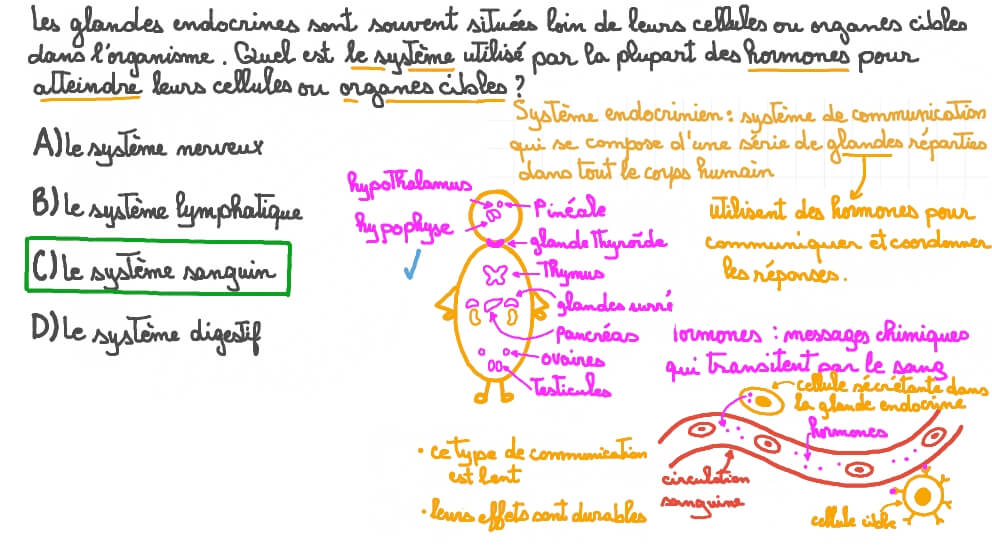 Les glandes endocrines sont souvent situées loin de leurs cellules ou organes cibles
dans l'organisme. Quel est le système utilisé par la plupart des hormones pour
atteindre leurs cellules ou organes cibles ?
A) Le système nerveux
B) Le système lymphatique
C) Le système sanguin
D) Le système digestif
Système endocrinien : système de communication
qui se compose d'une série de glandes réparties
dans tout le corps humain
utilisent des hormones pour
communiquer et coordonner
les réponses.
hypothalamus
hypophyse
Pinéale
glande thyroïde
Thymus
glandes surré
Pancréas
ovaires
Testicules
hormones : messages chimiques
qui transitent par le sang
cellule sécrétante dans
la glande endocrine
hormones
circulation
sanguine
cellule cible
• ce type de communication
est lent
• leurs effets sont durables